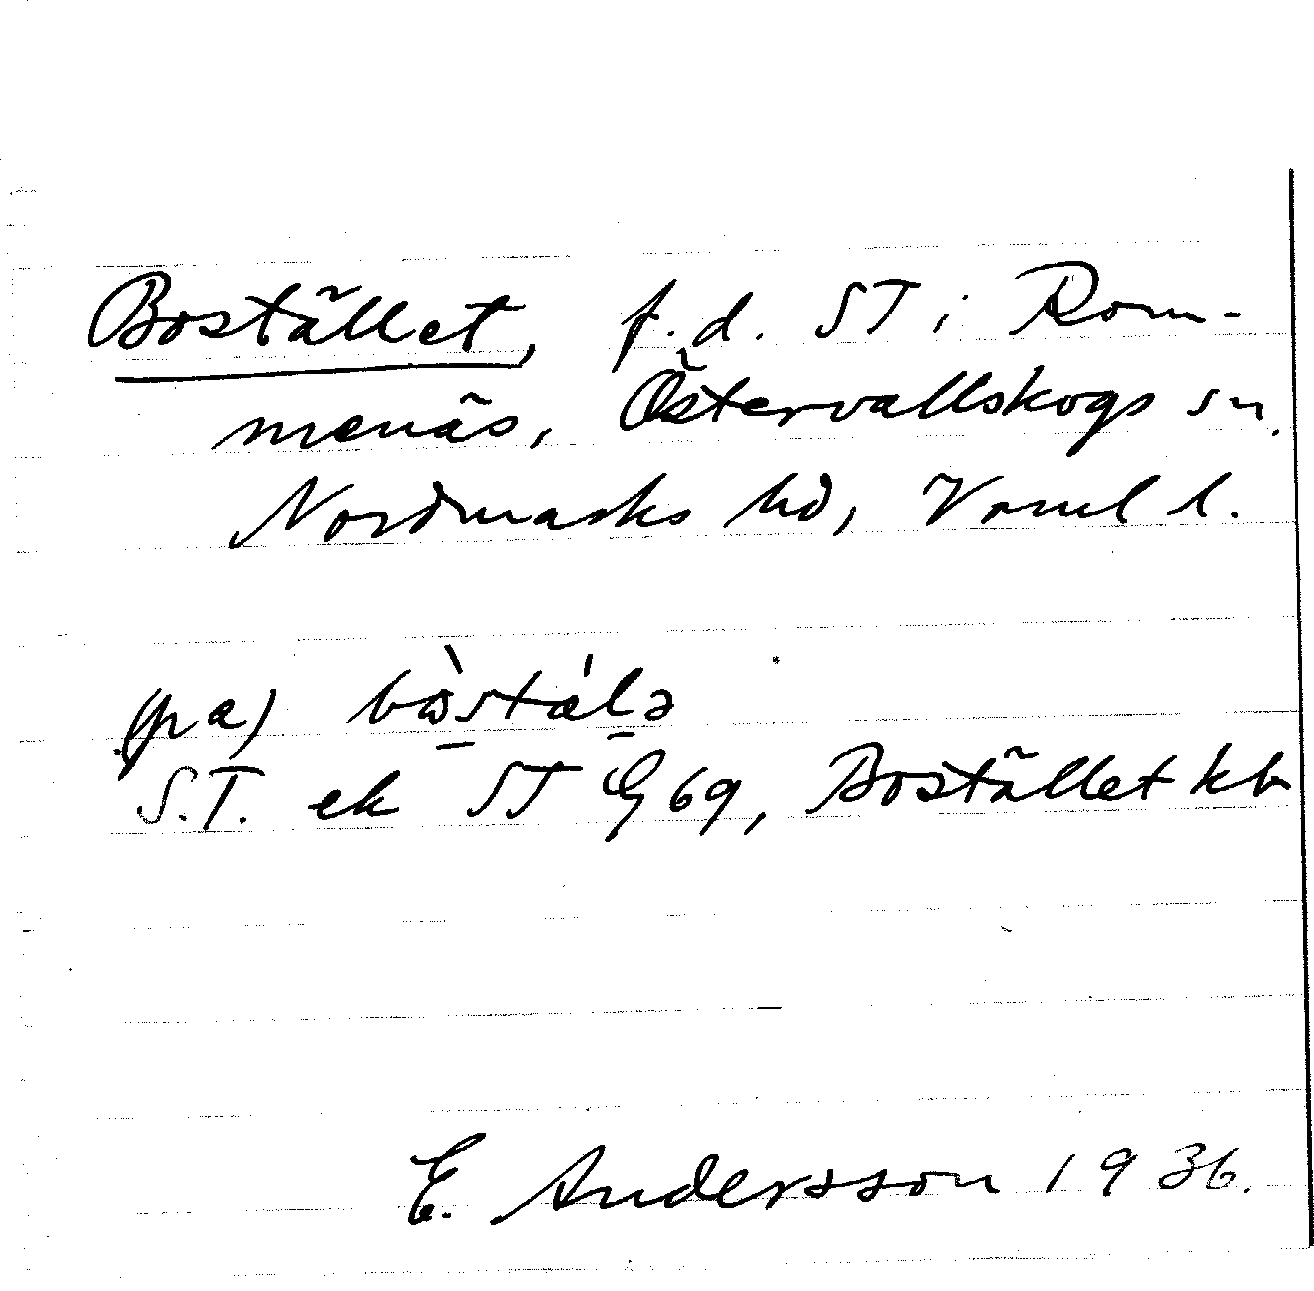 Bostället, f.d. ST i Rom-
menäs, Östervallskogs sn.
Nordmarks hd, Värml l.
(pa) bòstálə
S.T. ek ST G 69, Bostället kb
E. Andersson 1936.